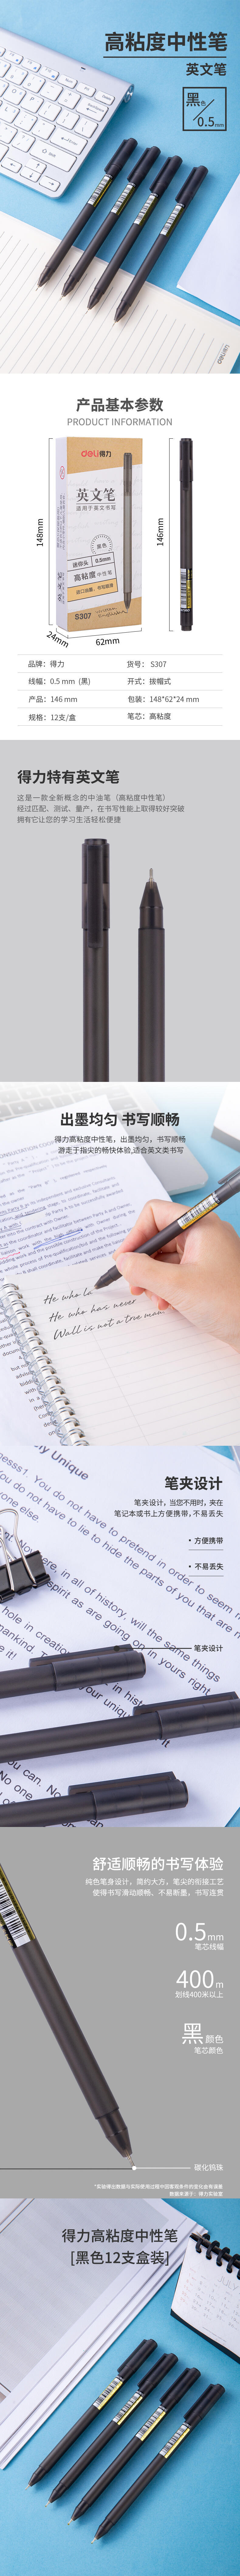 高粘度中性笔
英文笔
黑色
0.5mm
deli得力
产品基本参数
PRODUCT INFORMATION
deli得力
英文笔
适用于英文书写
黑色
迷你头 0.5mm
高粘度中性笔
S307
148mm
24mm
62mm
146mm
品牌：得力
货号：S307
线幅：0.5 mm (黑)
开式：拔帽式
产品：146 mm
包装：148*62*24 mm
规格：12支/盒
笔芯：高粘度
得力特有英文笔
这是一款全新概念的中油笔（高粘度中性笔）
经过匹配、测试、量产，在书写性能上取得较好突破
拥有它让您的学习生活轻松便捷
出墨均匀 书写顺畅
得力高粘度中性笔，出墨均匀，书写顺畅
游走于指尖的畅快体验,适合英文类书写
He who la
He who has never
Wall is not a true man
笔夹设计
笔夹设计，当您不用时，夹在
笔记本或书上方便携带，不易丢失
• 方便携带
• 不易丢失
笔夹设计
my Unique
You do not have to pretend in order to seem
You do not have to lie to hide the parts of you that are
舒适顺畅的书写体验
纯色笔身设计，简约大方，笔尖的衔接工艺
使得书写滑动顺畅、不易断墨，书写连贯
0.5mm
笔芯线幅
400m
划线400米以上
黑 颜色
笔芯颜色
碳化钨珠
*实验得出数据与实际使用过程中因客观条件的变化会有误差
数据来源于：得力实验室
得力高粘度中性笔
[黑色12支盒装]